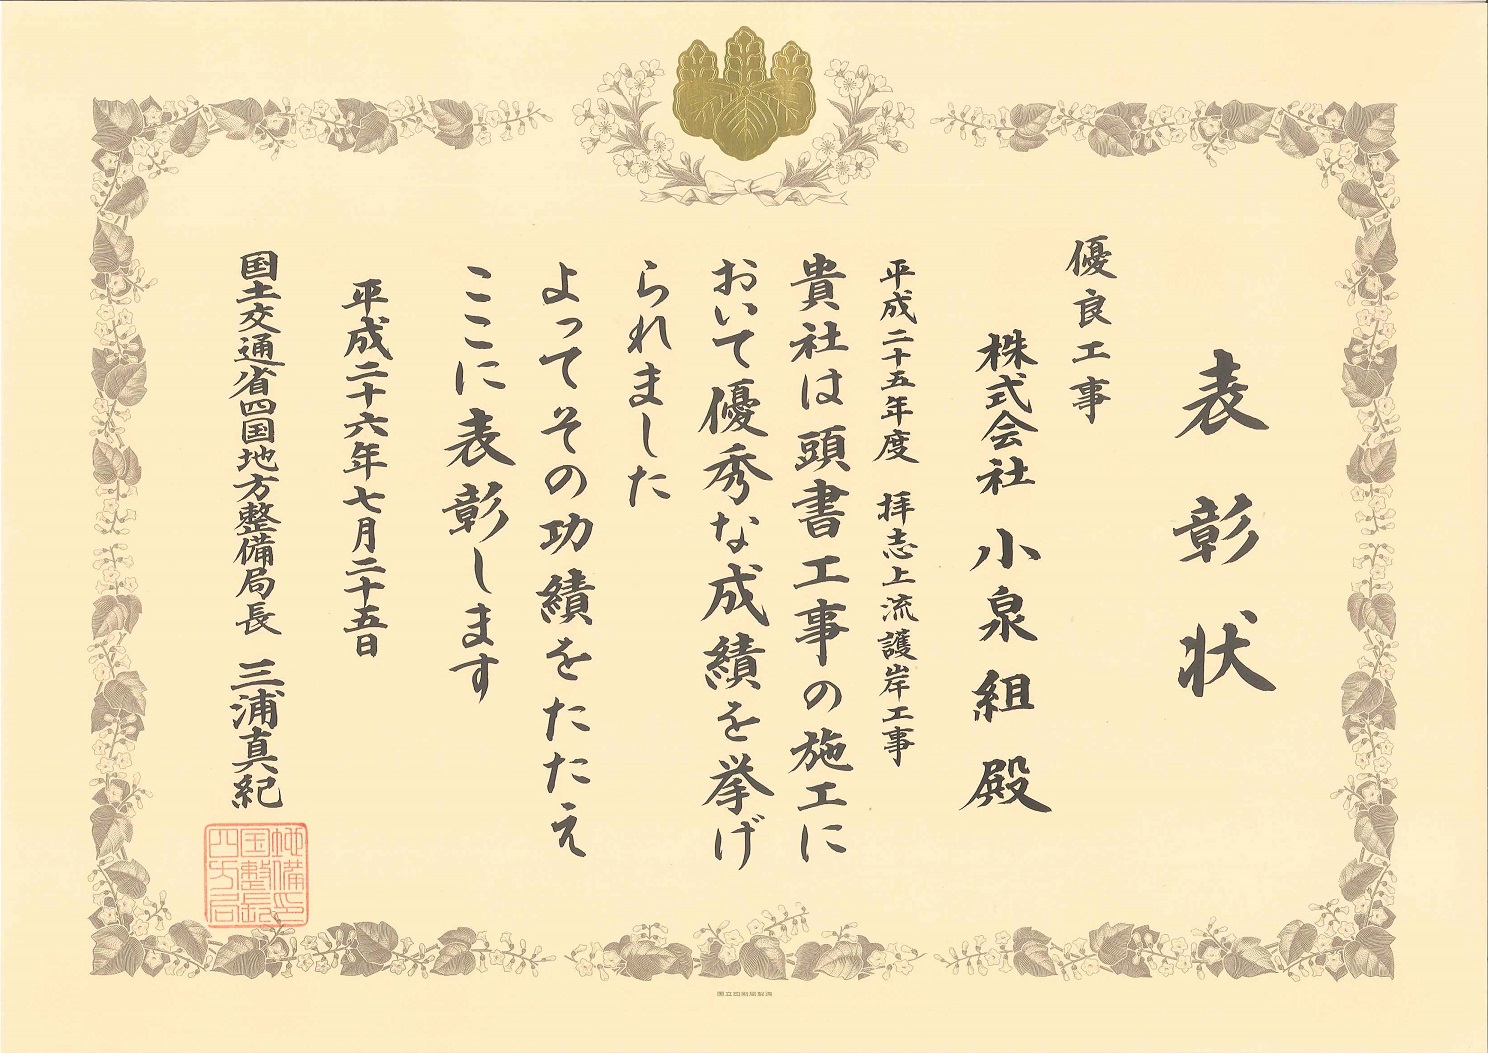 表彰状
優良工事
株式会社 小泉組 殿
平成二十五年度 拝志上流護岸工事
貴社は頭書工事の施工に
おいて優秀な成績を挙げ
られました
よってその功績をたたえ
ここに表彰します
平成二十六年七月二十五日
国土交通省四国地方整備局長 三浦真紀